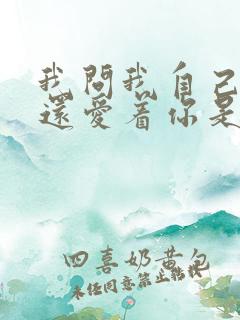 我問我自己
還愛着你是
四喜奶黄包
未经同意禁止转载